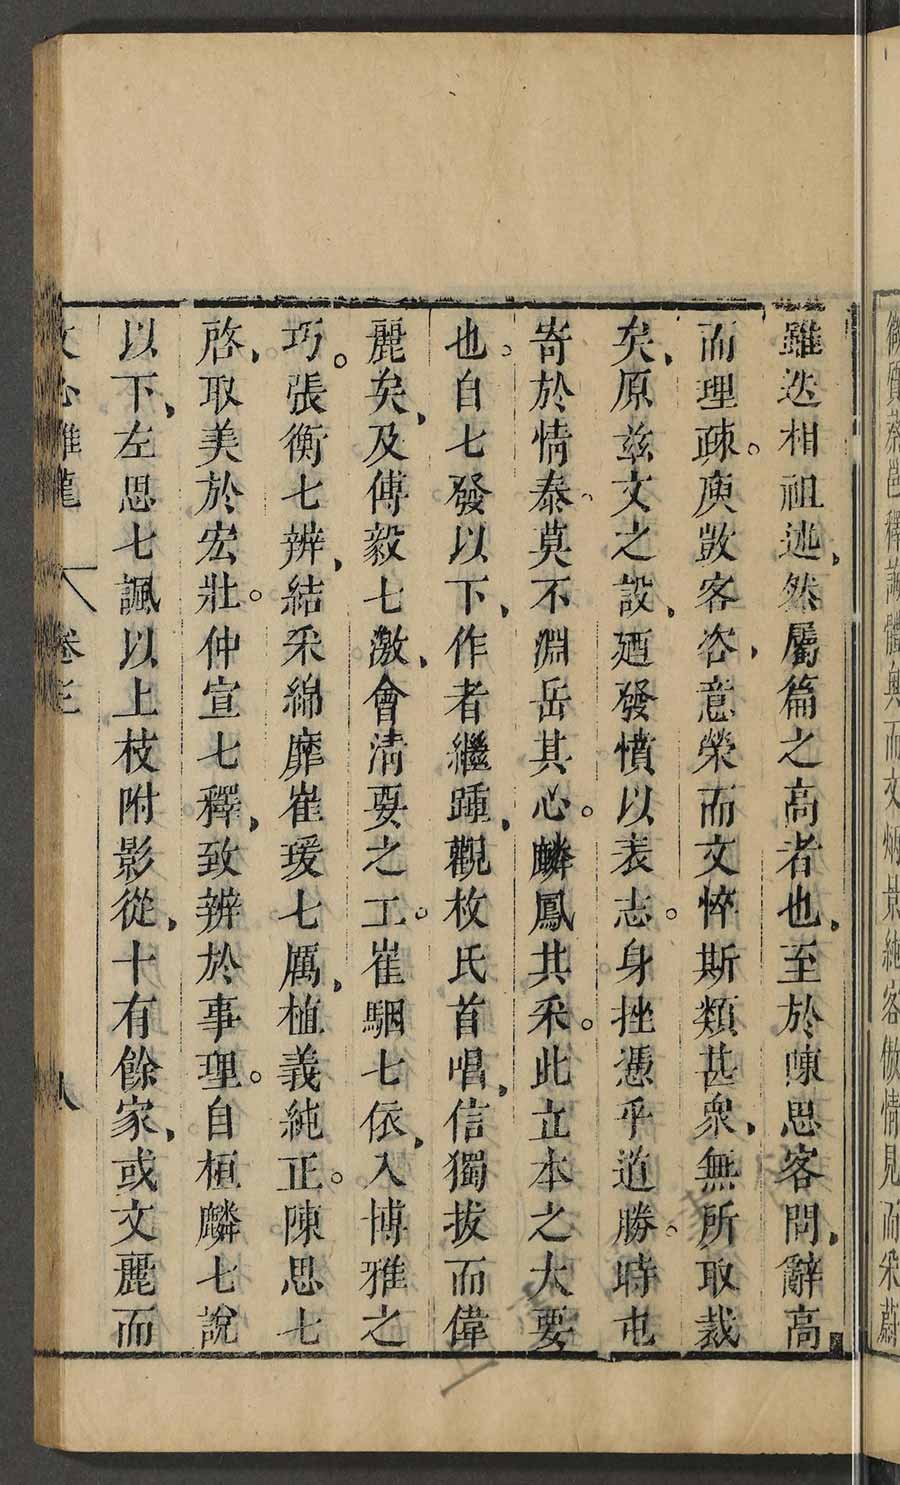 微質蔡邕釋誨體奧而文炳景純客傲情見而采蔚
雖迭相祖述，然屬篇之高者也，至於陳思客問，辭高
而理疎。庾敳客咨，意榮而文悴斯類甚衆，無所取裁
矣，原兹文之設，廼發憤以表志。身挫憑乎道勝。時屯
寄於情泰、莫不淵岳其心。麟鳳其采。此立本之大要
也。自七發以下，作者繼踵，觀枚氏首唱，信獨拔而偉
麗矣，及傅毅七激，會清要之工。崔駰七依，入博雅之
巧。張衡七辨，結采綿靡崔瑗七厲，植義純正。陳思七
啓，取美於宏壯。仲宣七釋，致辨於事理。自桓麟七說
以下，左思七諷以上枝附影從，十有餘家，或文麗而
文心雕龍 卷三 八